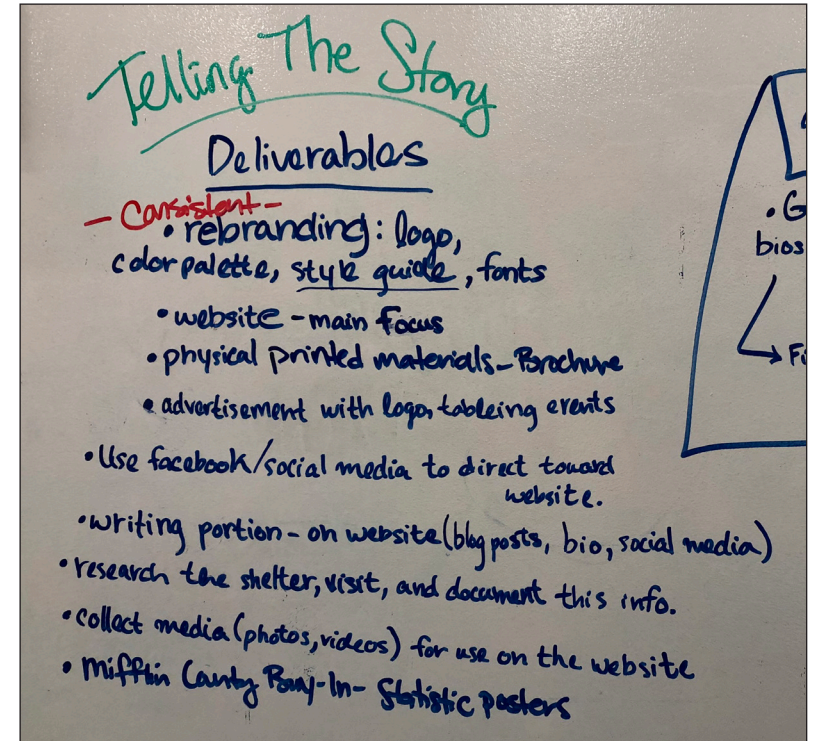 Telling The Story
Deliverables
- Consistent -
• rebranding: logo,
color palette, style guide, fonts
• website - main focus
• physical printed materials - Brochure
• advertisement with logo, tableing events
• Use facebook/social media to direct toward
website.
• writing portion - on website (blog posts, bio, social media)
• research the shelter, visit, and document this info.
• collect media (photos, videos) for use on the website
• Mifflin County Buy-In - Statistic posters
• G
bios
Fi